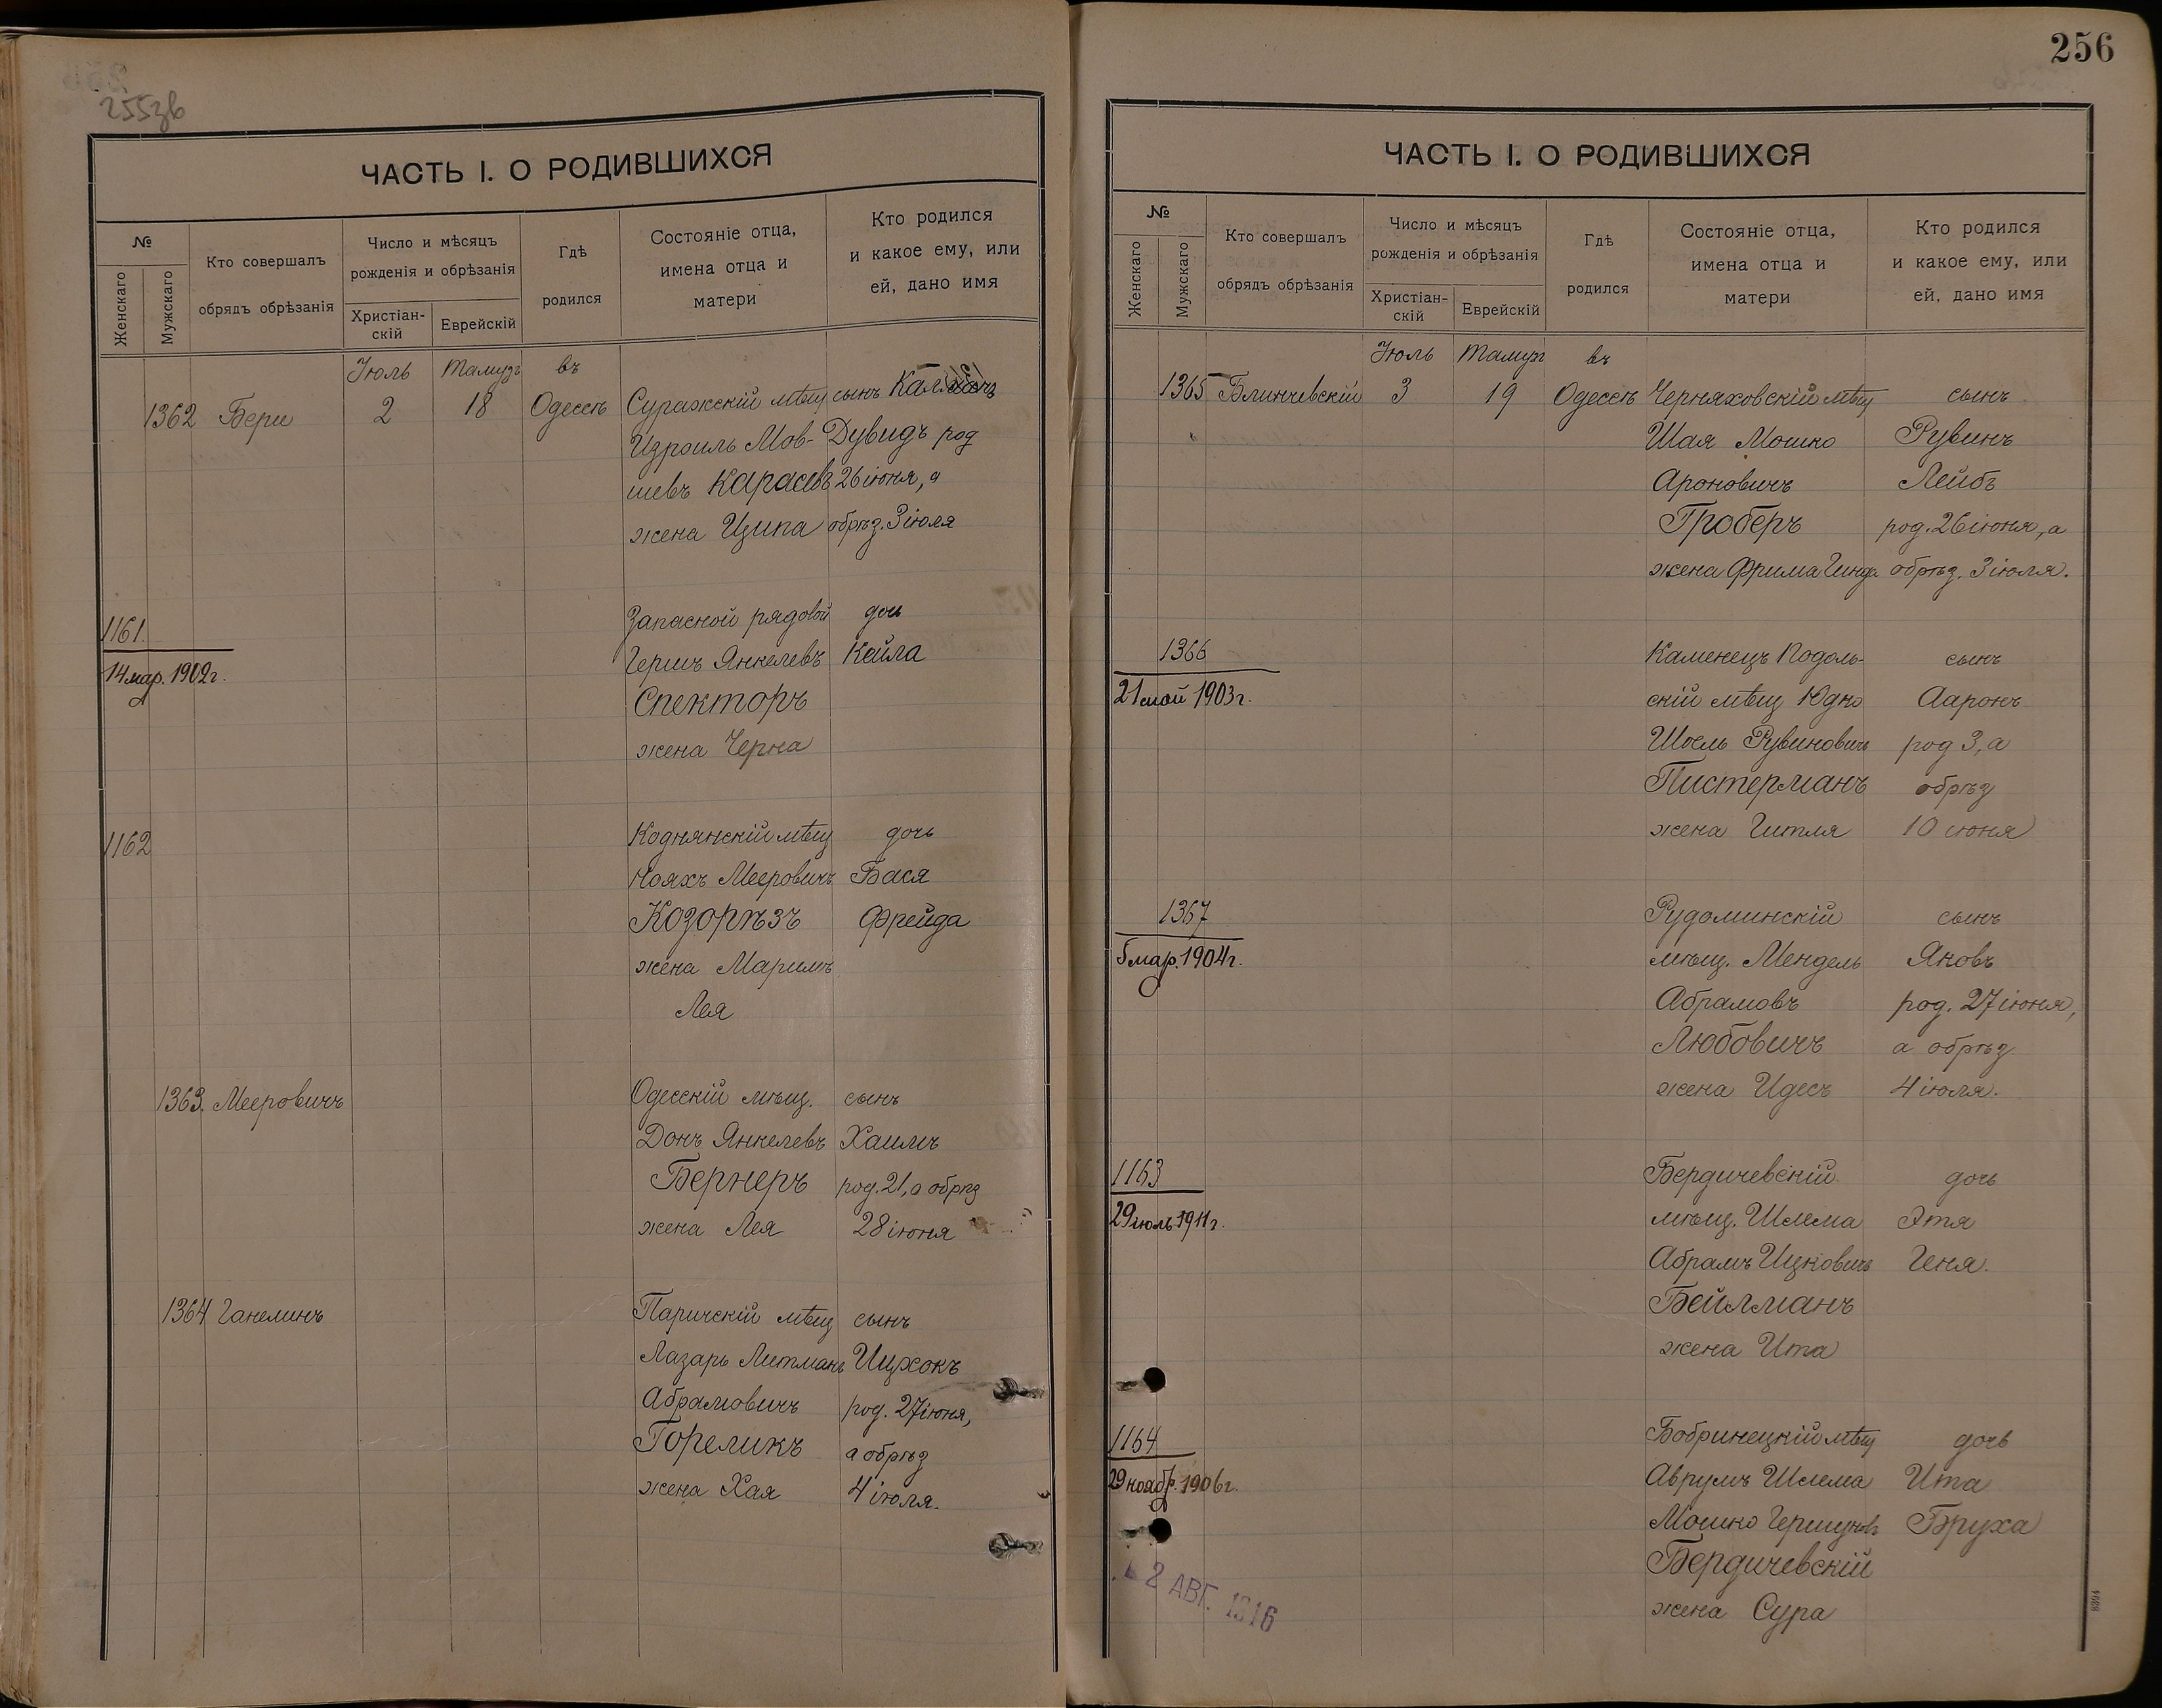 255зв
ЧАСТЬ I. О РОДИВШИХСЯ
№
Женскаго
Мужскаго
Кто совершалъ
обрядъ обрѣзанія
Число и мѣсяцъ
рожденія и обрѣзанія
Христіан-
скій
Еврейскій
Гдѣ
родился
Состояніе отца,
имена отца и
матери
Кто родился
и какое ему, или
ей, дано имя
Іюль Тамузъ въ
1362 Бери 2 18 Одессѣ Суражскій мѣщ сынъ
Израиль Мов- Дувидъ род
шевъ Карасевъ 26 іюня, а
жена Ципа обрѣз. 3 іюля
1161. Запасной рядовой дочь
14 мар. 1902г. Гершъ Янкелевъ Кейла
Спекторъ
жена Черна
1162 Коднянскій мѣщ дочь
Нояхъ Мееровичъ Бася
Козорѣзъ Фрейда
жена Маримъ
Лея
1363. Мееровичъ Одесскій мѣщ. сынъ
Донъ Янкелевъ Хаимъ
Бернеръ род. 21, а обрѣз
жена Лея 28 іюня
1364 Ганелинъ Паричскій мѣщ сынъ
Лазарь Литманъ Ицхокъ
Абрамовичъ род. 27 іюня,
Гореликъ а обрѣз
жена Хая 4 іюля.
256
ЧАСТЬ I. О РОДИВШИХСЯ
№
Женскаго
Мужскаго
Кто совершалъ
обрядъ обрѣзанія
Число и мѣсяцъ
рожденія и обрѣзанія
Христіан-
скій
Еврейскій
Гдѣ
родился
Состояніе отца,
имена отца и
матери
Кто родился
и какое ему, или
ей, дано имя
Іюль Тамузъ въ
1365 Блинчевскій 3 19 Одессѣ Черняховскій мѣщ сынъ
Шая Мошко Рувинъ
Ароновичъ Лейбъ
Гроберъ род. 26 іюня, а
жена Фрима обрѣз. 3 іюля.
1366 Каменецъ Подоль- сынъ
21 май 1903г. скій мѣщ Юдко Ааронъ
Шоель Рувиновичъ род 3, а
Пистерманъ обрѣз
жена Гитля 10 іюня
1367 Рудоминскій сынъ
5 мар. 1904г. мѣщ. Мендель Яковъ
Абрамовъ род. 27 іюня,
Любовичъ а обрѣз
жена Идесъ 4 іюля.
1163 Бердичевскій дочь
29 іюль 1911г. мѣщ. Шлема Этя
Абрамъ Ицковичъ Геня.
Бейлманъ
жена Ита
1164 Бобринецкій мѣщ дочь
29 ноябр. 1906г. Аврумъ Шлема Ита
Мошко Гершуновъ Бруха
Бердичевскій
жена Сура
2 АВГ. 1916
8394